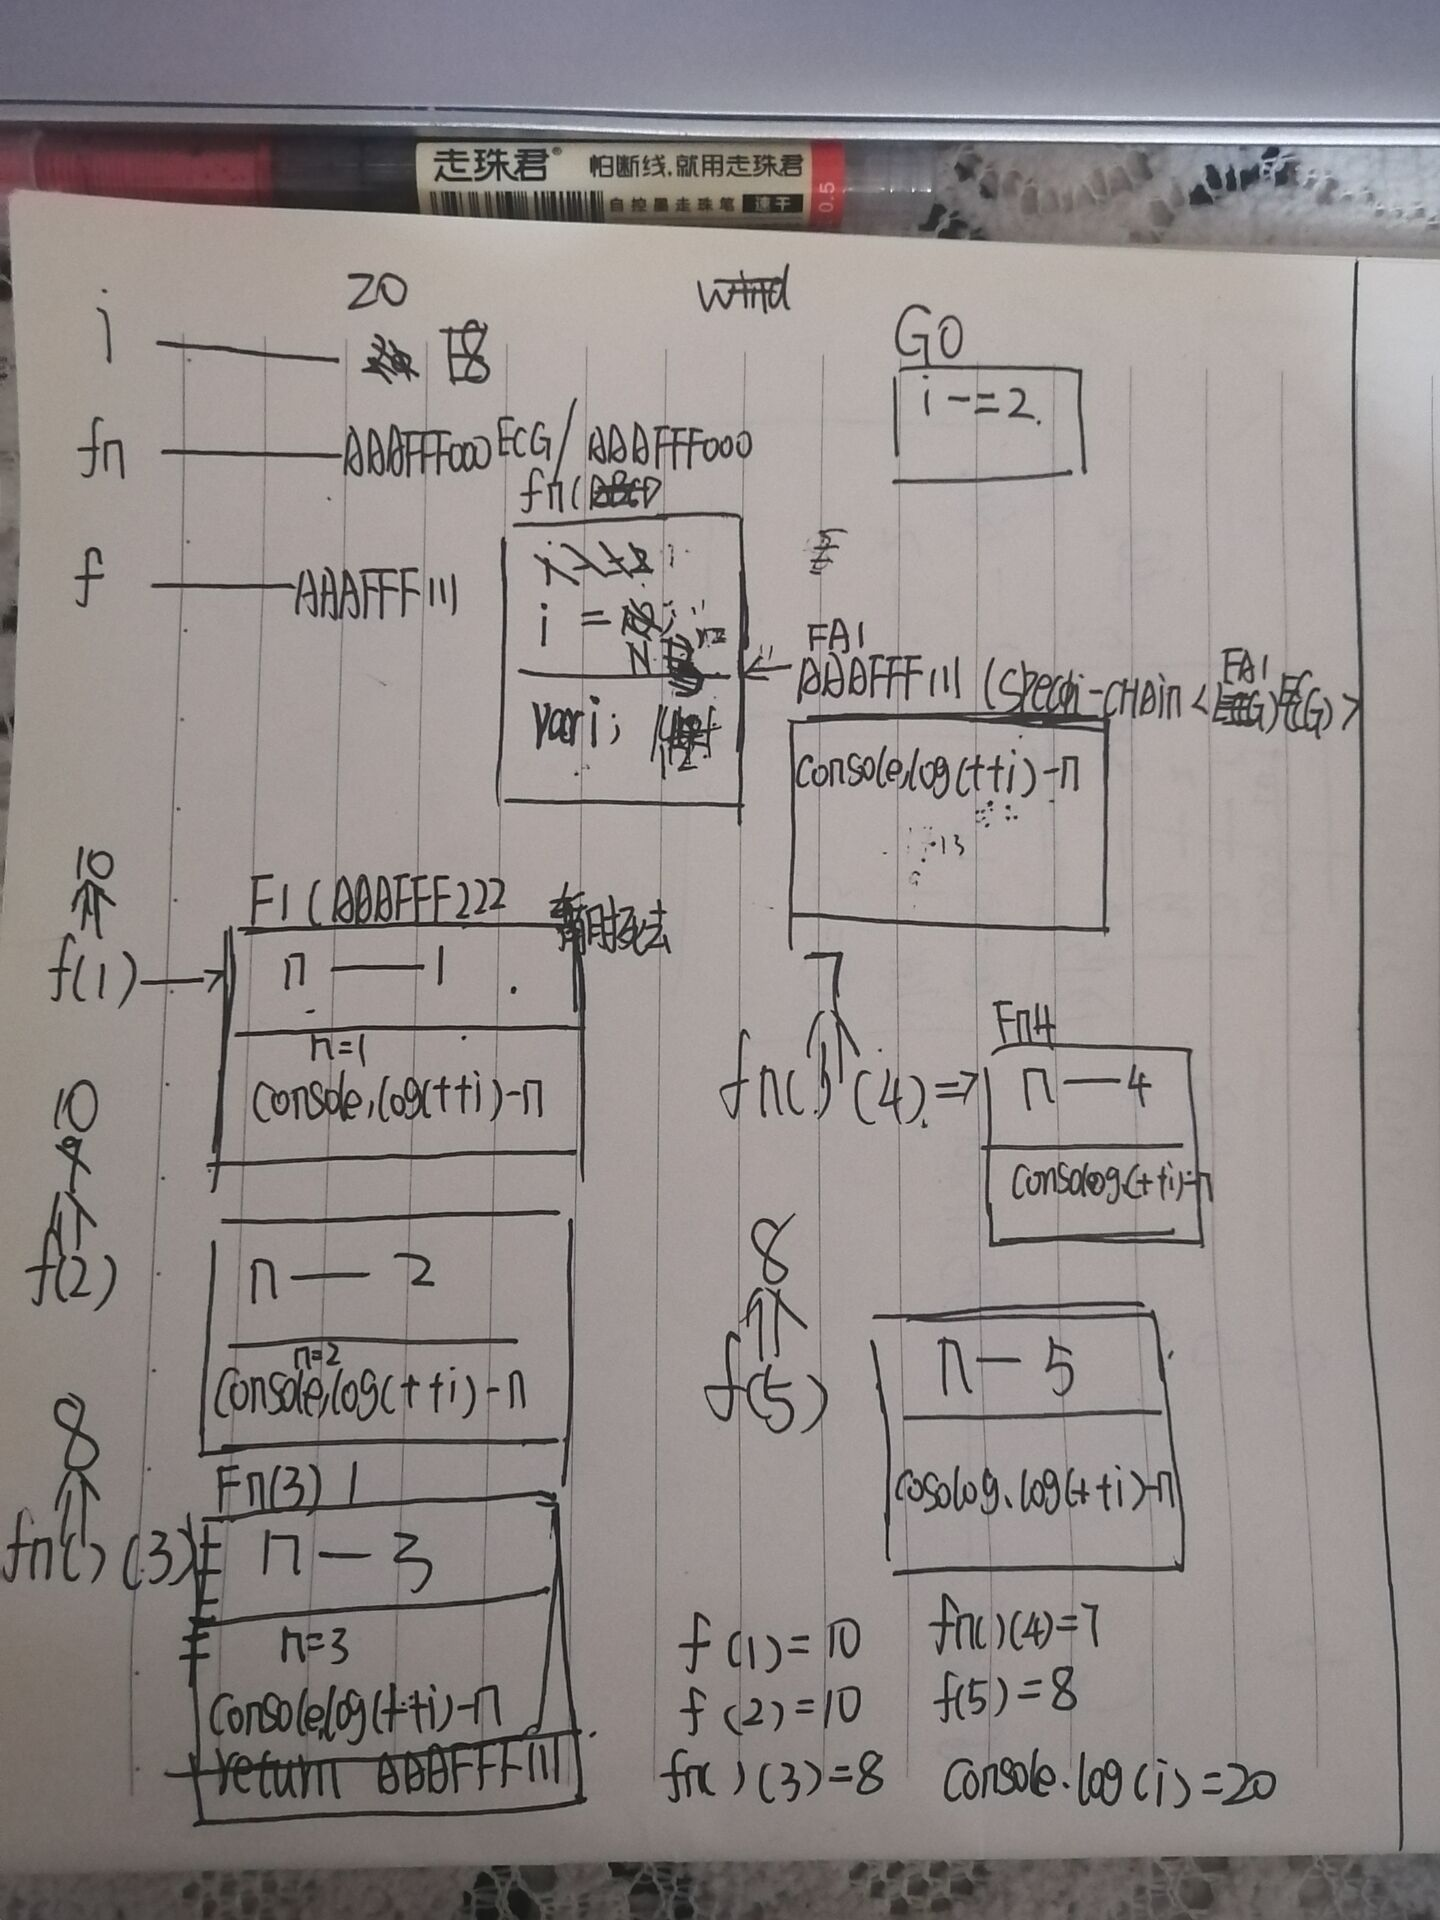 走珠君® 怕断线.就用走珠君
自控墨走珠笔 速干 0.5
20
i
GO
i-=2.
fn AAAFFF000 ECG/AAAFFF000
fn(
f AAAFFF111
i =
FA1
AAAFFF111
var i;
console.log(++i)-n
13
10
F1(AAAFFF222
f(1) n — 1
n=1
console.log(++i)-n
10
f(2)
n — 2
n=2
console.log(++i)-n
8
Fn(3)
fn()(3) n — 3
n=3
console.log(++i)-n
return AAAFFF111
7
fn()(4). Fn4
n — 4
consolog.(++i)-n
8
f(5)
n — 5
cosolog.log(++i)-n
f(1)=10 fn()(4)=7
f(2)=10 f(5)=8
fn()(3)=8 console.log(i)=20